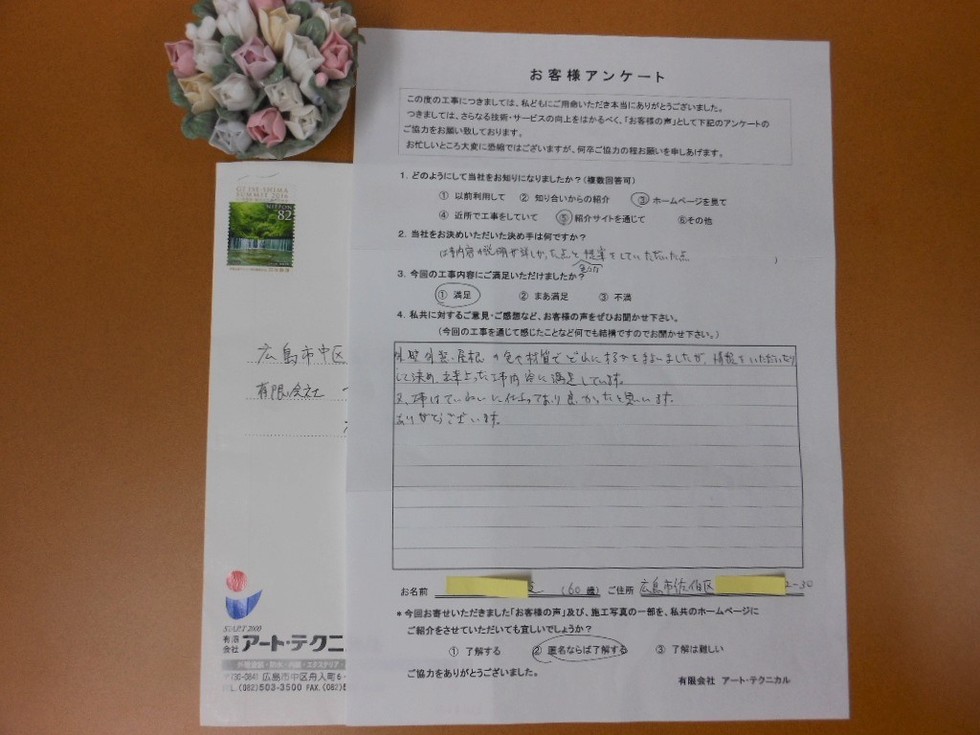 お客様アンケート
この度の工事につきましては、私どもにご用命いただき本当にありがとうございました。
つきましては、さらなる技術・サービスの向上をはかるべく、「お客様の声」として下記のアンケートの
ご協力をお願い致しております。
お忙しいところ大変に恐縮ではございますが、何卒ご協力の程お願いを申しあげます。
1. どのようにして当社をお知りになりましたか?(複数回答可)
① 以前利用して ② 知り合いからの紹介 ③ ホームページを見て
④ 近所で工事をしていて ⑤ 紹介サイトを通じて ⑥その他
2. 当社をお決めいただいた決め手は何ですか?
内容の説明が詳しかった点と提案をしていただいた点
3. 今回の工事内容にご満足いただけましたか?
① 満足 ② まあ満足 ③ 不満
4. 私共に対するご意見・ご感想など、お客様の声をぜひお聞かせ下さい。
(今回の工事を通じて感じたことなど何でも結構ですのでお聞かせ下さい。)
外壁 屋根の色や材質でどれにするかまよいましたが、
して決め 工事内容に満足しています。
又、工事はていねいに仕上っており良かったと思います。
ありがとうございます。
お名前 (60歳) ご住所 広島市佐伯区 2-30
*今回お寄せいただきました「お客様の声」及び、施工写真の一部を、私共のホームページに
ご紹介をさせていただいても宜しいでしょうか?
① 了解する ② 匿名ならば了解する ③ 了解は難しい
ご協力をありがとうございました。
有限会社 アート・テクニカル
SUMMIT 2016
NIPPON
82
広島市中区
有限会社
START 2000
有限会社 アート・テクニ
〒730-0841 広島市中区舟入町6-
TEL.(082)503-3500 FAX.(082)5